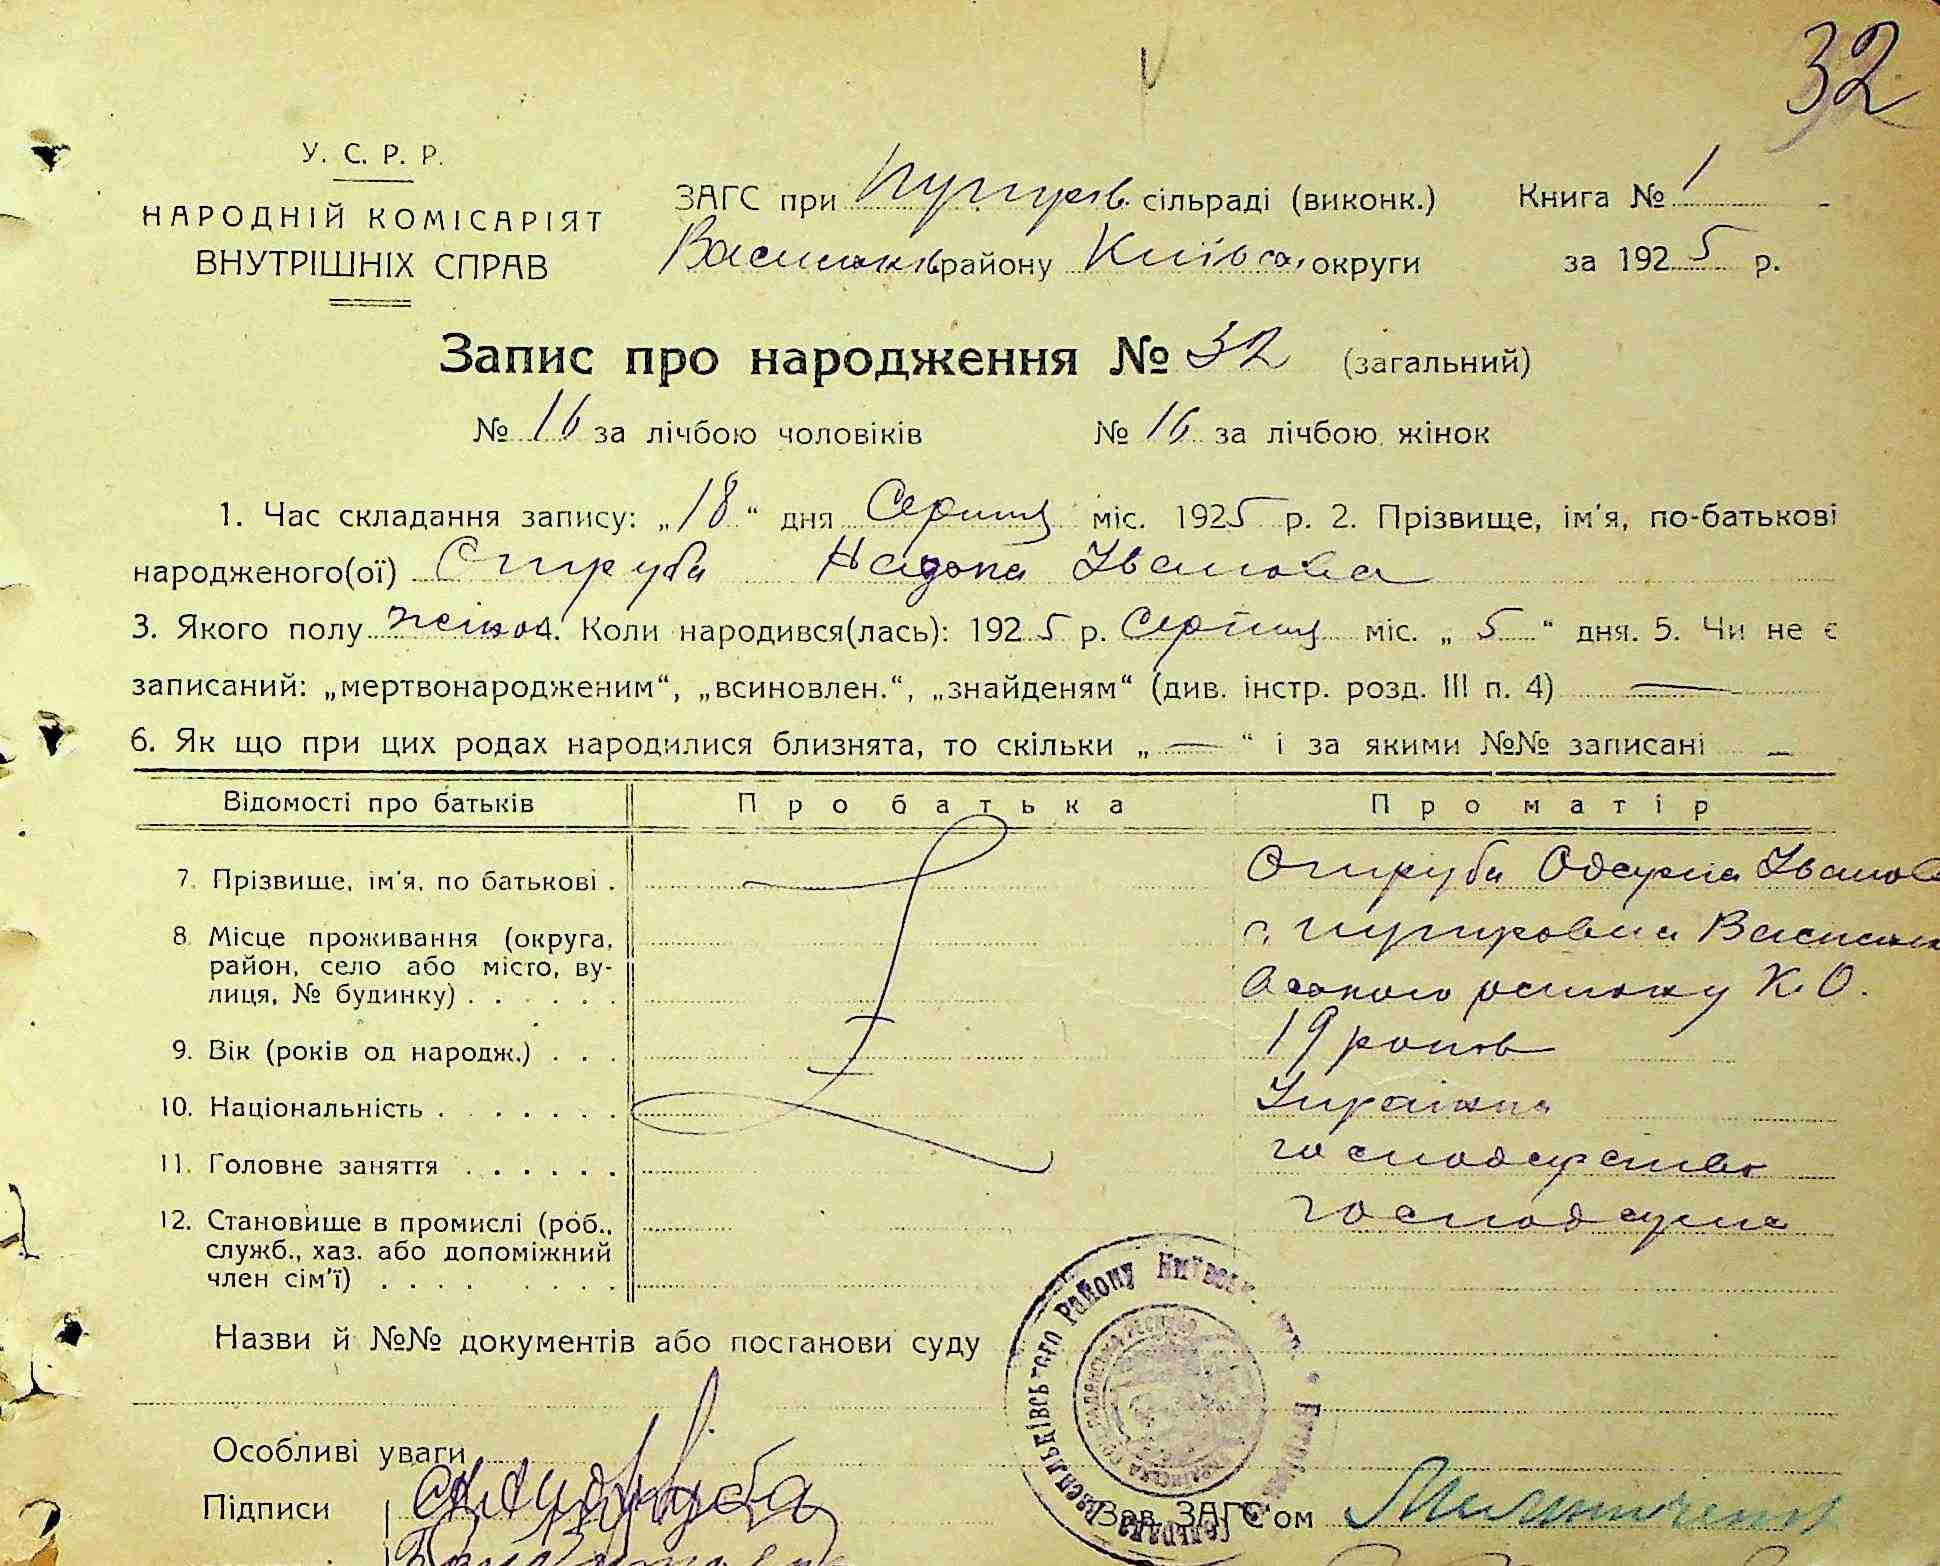 32
У. С. Р. Р.
НАРОДНІЙ КОМІСАРІЯТ
ВНУТРІШНІХ СПРАВ
ЗАГС при сільраді (виконк.) Книга № 1
Васильків району Київськ. округи за 1925 р.
Запис про народження № 32 (загальний)
№ 16 за лічбою чоловіків № 16 за лічбою жінок
1. Час складання запису: „18“ дня Серпня міс. 1925 р. 2. Прізвище, ім'я, по-батькові
народженого(ої) Надєпа Іванова
3. Якого полу жіноч. 4. Коли народився(лась): 1925 р. Серпня міс. „5“ дня. 5. Чи не є
записаний: „мертвонародженим“, „всиновлен.“, „знайденям“ (див. інстр. розд. III п. 4) —
6. Як що при цих родах народилися близнята, то скільки „—“ і за якими №№ записані —
Відомості про батьків Про батька Про матір
7. Прізвище, ім'я, по батькові . Одарка Іванов
8 Місце проживання (округа,
район, село або місто, ву-
лиця, № будинку) . . . . . . К. О.
9. Вік (років од народж.) . . . 19 років
10. Національність . . . . . . . Українка
11. Головне заняття . . . . . . господарство
12. Становище в промислі (роб., господарка
служб., хаз. або допоміжний
член сім'ї) . . . . . . . .
Назви й №№ документів або постанови суду
Особливі уваги
Підписи Зав. ЗАГС'ом